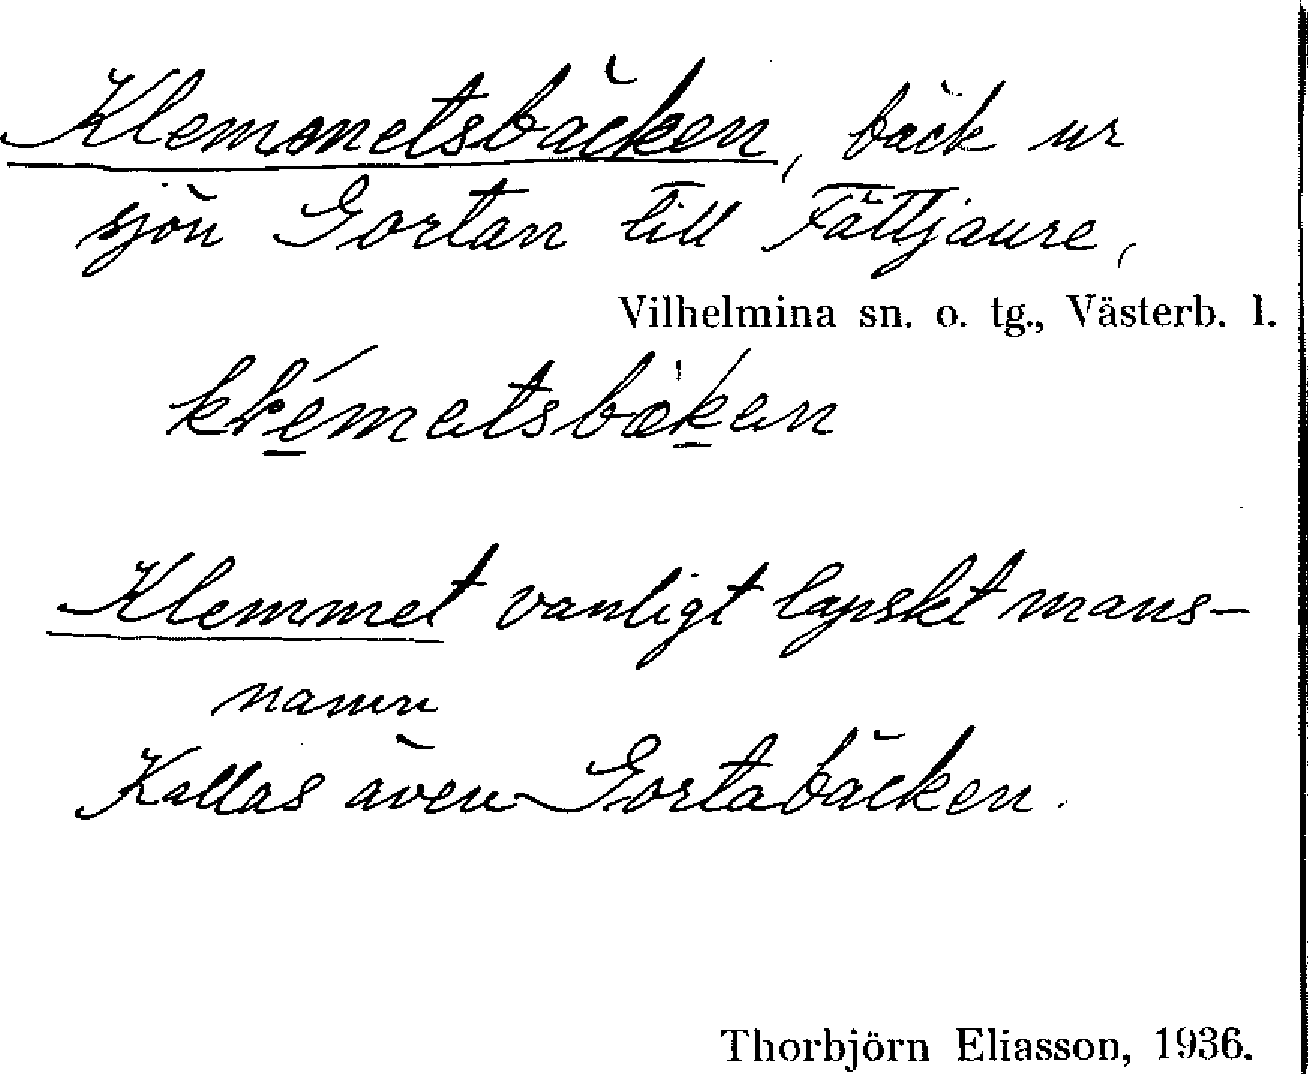 Klemmetsbäcken, bäck ur
sjön Gortan till Fättjaure,
Vilhelmina sn. o. tg., Västerb. l.
Klemmet vanligt lapskt mans-
namn
Kallas även Gortabäcken.
Thorbjörn Eliasson, 1936.